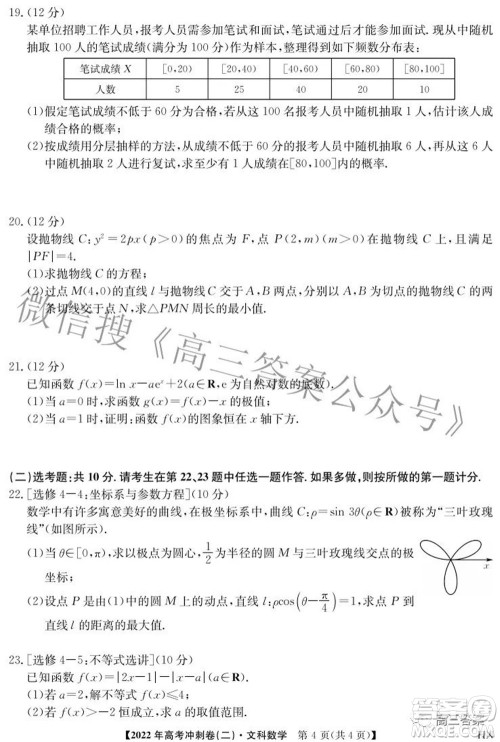 19.(12 分)
某单位招聘工作人员,报考人员需参加笔试和面试,笔试通过后才能参加面试. 现从中随机
抽取 100 人的笔试成绩(满分为 100 分)作为样本,整理得到如下频数分布表:
笔试成绩 X [0,20) [20,40) [40,60) [60,80) [80,100]
人数 5 25 40 20 10
(1)假定笔试成绩不低于 60 分为合格,若从这 100 名报考人员中随机抽取 1 人,估计该人成
绩合格的概率;
(2)按成绩用分层抽样的方法,从成绩不低于 60 分的报考人员中随机抽取 6 人,再从这 6 人
中任选 2 人进行复试,求至少有 1 人成绩在[80,100]内的概率.
20.(12 分)
设抛物线 C:y²=2px(p>0)的焦点为 F,点 P(2,m)(m>0)在抛物线 C 上,且满足
|PF|=4.
(1)求抛物线 C 的方程;
(2)过点 M(4,0)的直线 l 与抛物线 C 交于 A,B 两点,分别以 A,B 为切点的抛物线 C 的两
条切线交于点 N,求△PMN 周长的最小值.
21.(12 分)
已知函数 f(x)=ln x-aeˣ+2(a∈R,e 为自然对数的底数).
(1)当 a=0 时,求函数 g(x)=f(x)-x 的最值;
(2)当 a=1 时,证明:函数 f(x)的图象恒在 x 轴下方.
(二)选考题:共 10 分. 请考生在第 22、23 题中任选一题作答. 如果多做,则按所做的第一题计分.
22.[选修 4-4:坐标系与参数方程](10 分)
数学中有许多寓意美好的曲线,在极坐标系中,曲线 C:ρ=sin 3θ(ρ∈R)被称为“三叶玫瑰
线”(如图所示).
(1)当 θ∈[0,π),求以极点为圆心,1/2 为半径的圆 M 与三叶玫瑰线交点的极
坐标;
x
(2)设点 P 是由(1)中的圆 M 上的动点,直线 l:ρcos(θ-π/4)=1,求点 P 到
直线 l 的距离的最大值.
23.[选修 4-5:不等式选讲](10 分)
已知函数 f(x)=|2x-1|-|x-a|(a∈R).
(1)若 a=2,解不等式 f(x)≤4;
(2)若 a>-2 恒成立,求 a 的取值范围.
【2022 年高考冲刺卷(二)·文科数学 第 4 页(共 4 页)】 HX
微信搜《高三答案公众号》
高三答案